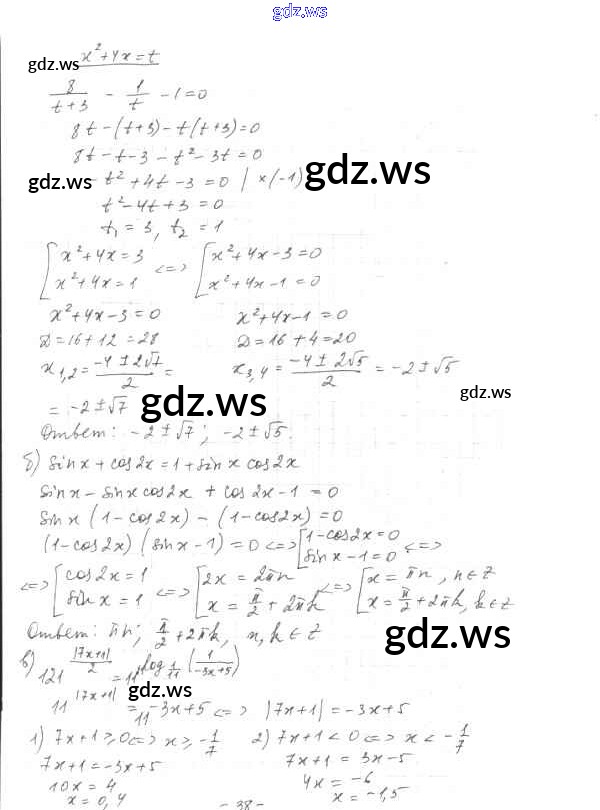 gdz.ws
x²+4x=t
gdz.ws
8/(t+3) - 1/t - 1=0
8t-(t+3)-t(t+3)=0
8t-t-3-t²-3t=0
gdz.ws -t²+4t-3=0 | ×(-1) gdz.ws
t²-4t+3=0
t₁=3, t₂=1
[x²+4x=3 <=> [x²+4x-3=0
x²+4x=1 x²+4x-1=0
x²+4x-3=0 x²+4x-1=0
D=16+12=28 D=16+4=20
x₁,₂=(-4±2√7)/2= x₃,₄=(-4±2√5)/2=-2±√5
=-2±√7 gdz.ws gdz.ws
Ответ: -2±√7; -2±√5.
б) sin x+cos2x=1+sin x cos2x
sin x-sin x cos2x+cos2x-1=0
sin x(1-cos2x)-(1-cos2x)=0
(1-cos2x)(sin x-1)=0 <=> [1-cos2x=0 <=>
sin x-1=0
<=> [cos2x=1 <=> [2x=2πn <=> [x=πn, n∈Z
sin x=1 x=π/2+2πk x=π/2+2πk, k∈Z
Ответ: πn; π/2+2πk, n,k∈Z gdz.ws
в) 121^(|7x+1|/2)=11^(log_(1/11)(1/(-3x+5)))
gdz.ws
11^|7x+1|=11^(-3x+5) <=> |7x+1|=-3x+5
1) 7x+1≥0 <=> x≥-1/7 2) 7x+1<0 <=> x<-1/7
7x+1=-3x+5 7x+1=3x-5
10x=4 4x=-6
x=0,4 x=-1,5
-38-